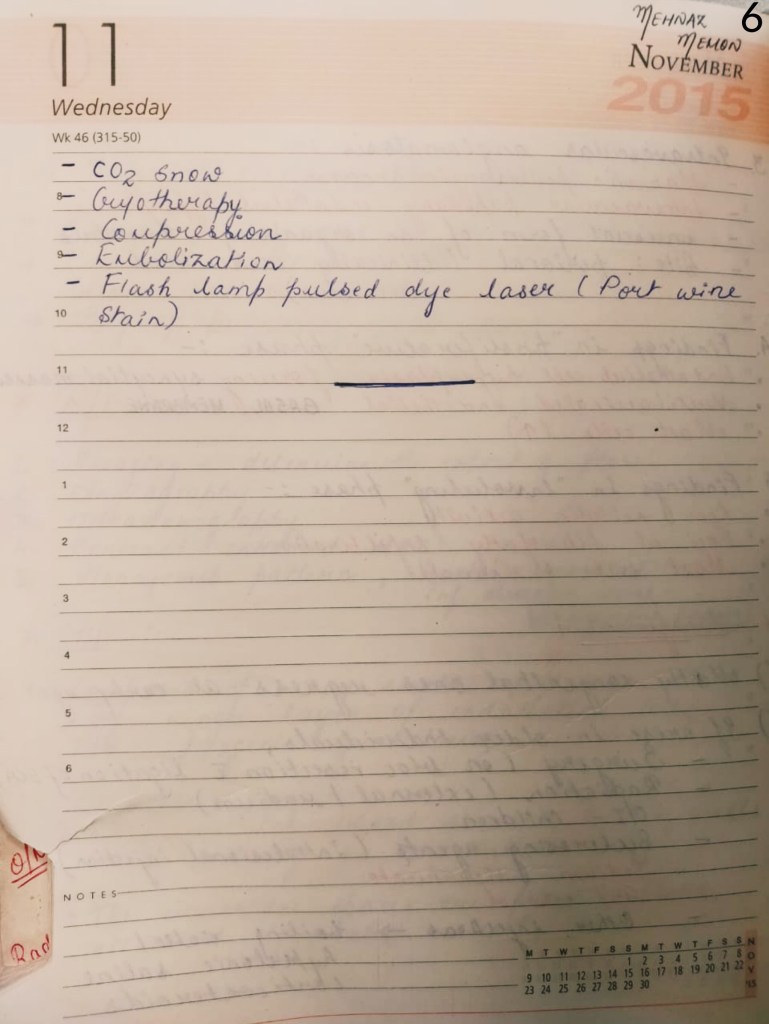 MEHNAZ 6
MEMON
11
NOVEMBER
2015
Wednesday
Wk 46 (315-50)
- CO2 Snow
8 - Cryotherapy
- Compression
9 - Embolization
- Flash lamp pulsed dye laser (Port wine
10 Stain)
11
12
1
2
3
4
5
6
NOTES
Rad
M T W T F S S M T W T F S S
1 2 3 4 5 6 7 8
9 10 11 12 13 14 15 16 17 18 19 20 21 22
23 24 25 26 27 28 29 30
NOV